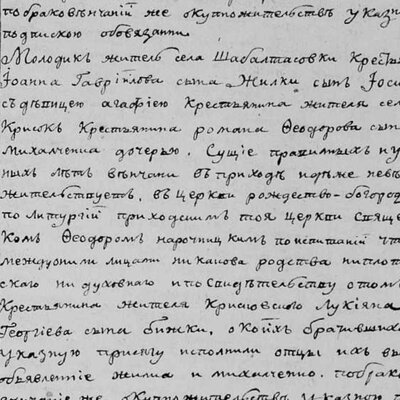 по браковѣнчанiй же окупножительствѣ указн
подпискою обовязанны
Молодикъ жителъ села Шабалтасовки Крестья
Iоанна Гаврiилова сына Жилки сынъ Iоси
съ дѣвицею агафiею Крестьянина жителя сел
Крисокъ Крестьянина романа Ѳеодорова сына
Михалченка дочерью. Сущiе правилныхъ и у
ныхъ лѣтъ вѣнчани въ приходѣ идѣже невѣ
жителствуетъ, въ церкви рождество-богород
по литургiй приходсцимъ тоя церкви свяще
комъ Ѳеодоромъ нарочницкимъ по испитанiй чт
междуоними лицами никакова родства ни плот
скаго ни духовнаго и по свидѣтельству о томъ
Крестьянина жителя Крисковского Лукiяна
Георгiева сына бижки, о коихъ брачившихс
указную присягу исполнили отцы ихъ вы
объявленнiе жилка и михалченко. по брако
же окупножительствѣ указною п